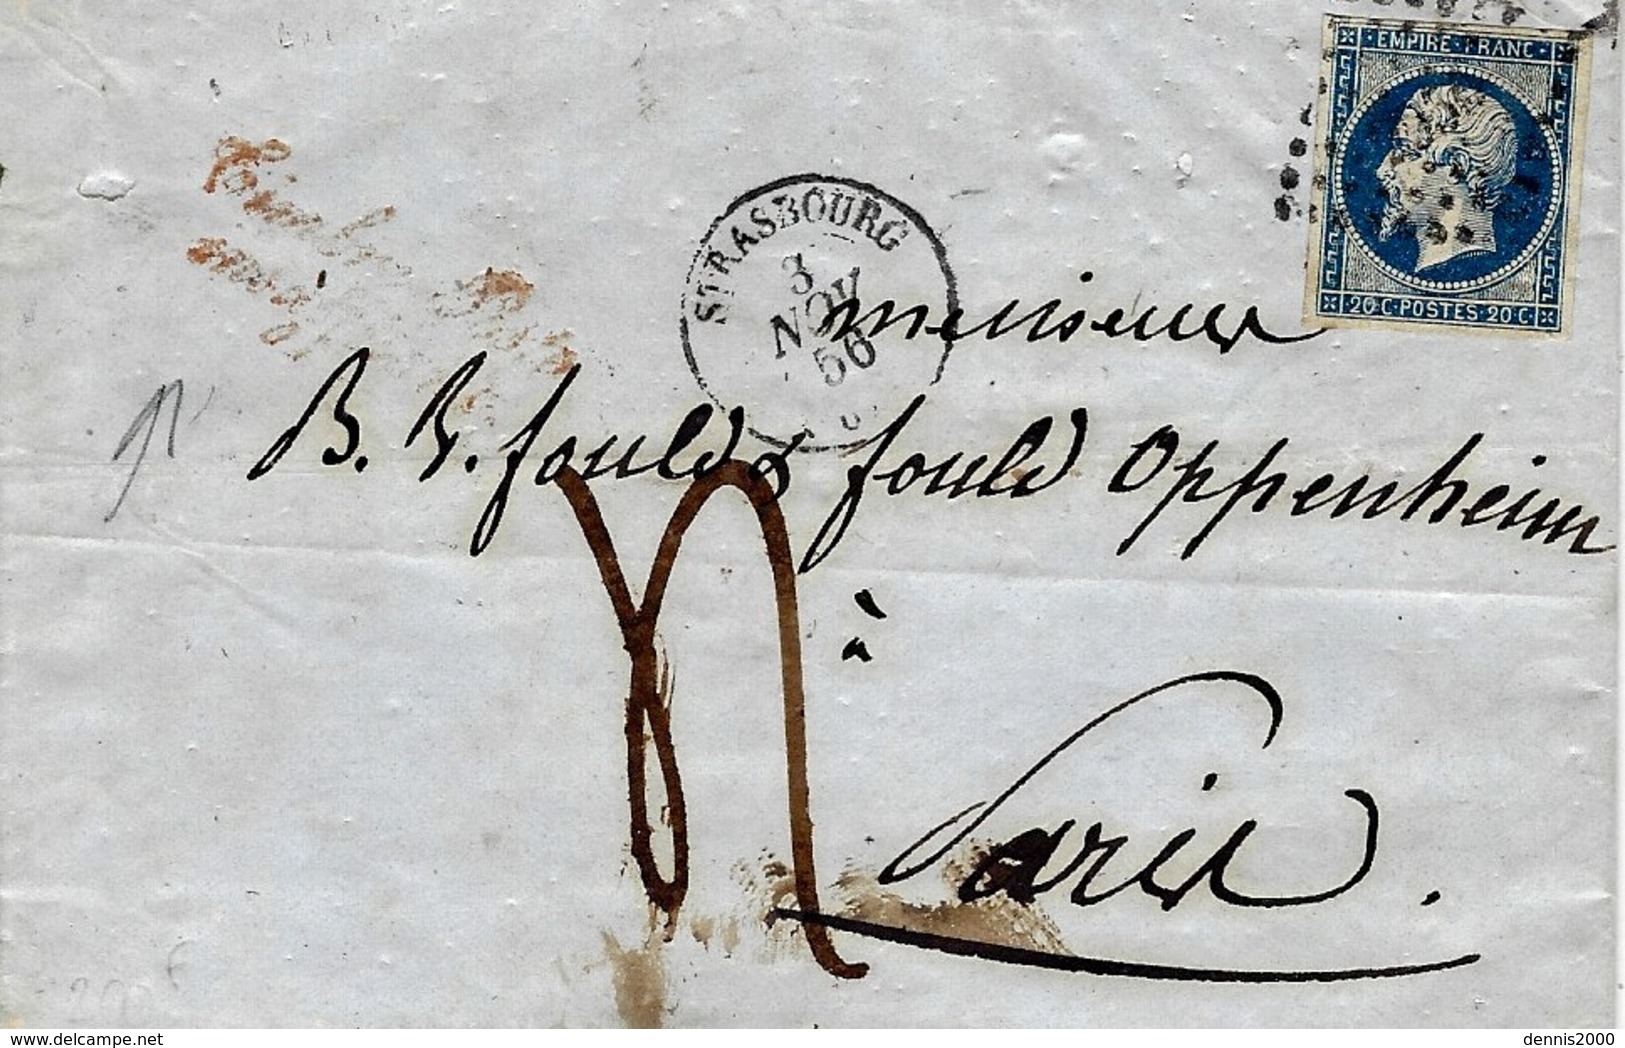 EMPIRE · FRANC ·
20 · C · POSTES · 20 · C ·
STRASBOURG
3
NOV
56
messieurs
B. L. fould & fould Oppenheim
à
Paris.
dennis2000